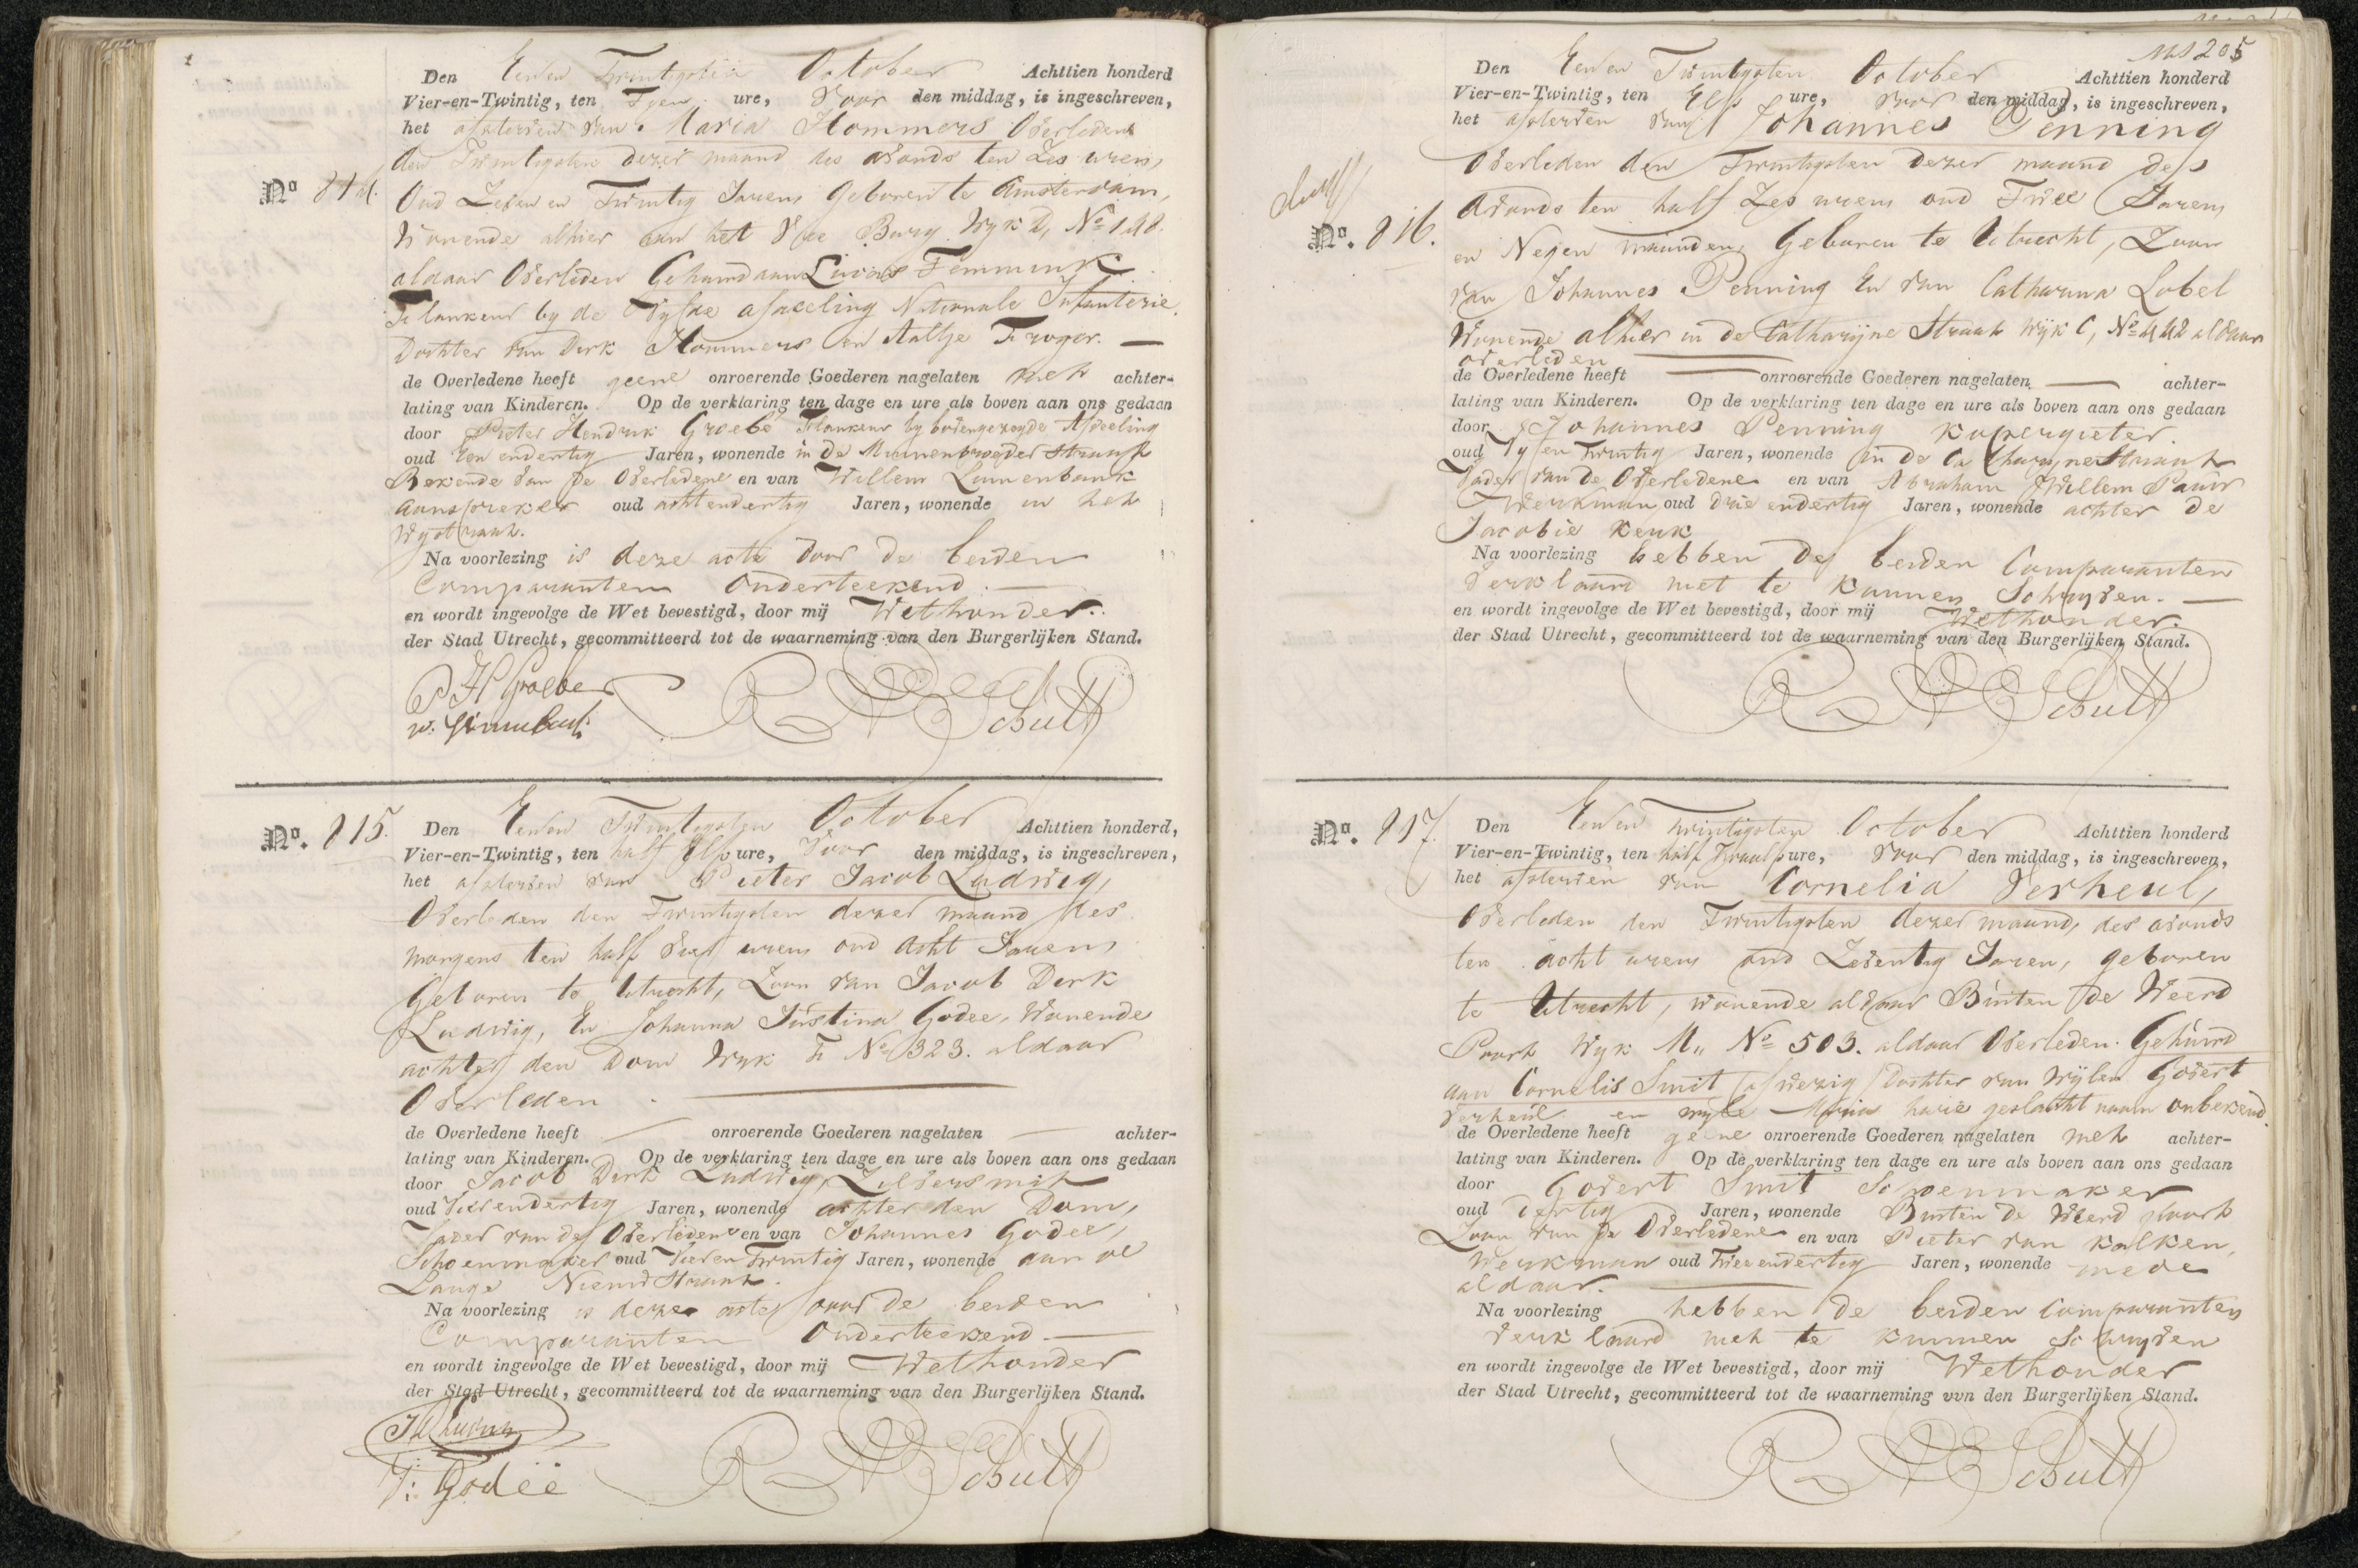 Den Een en Twintigsten October Achttien honderd
Vier-en-Twintig, ten Tien ure, Voor den middag, is ingeschreven,
het afsterven van Maria Hommers Overleden
den Twintigsten dezer maand des avonds ten Zes uren,
No 814.
Oud Zeven en Twintig Jaren Geboren te Amsterdam,
Wonende alhier aan het Vree Burg Wyk D, No 148.
aldaar Overleden Gehuwd aan Lucas Temmink
Flankeur by de Vyfde afdeeling Nationale Infanterie.
Dochter van Dirk Hommers en Aaltje Troger. —
de Overledene heeft geene onroerende Goederen nagelaten met achter-
lating van Kinderen. Op de verklaring ten dage en ure als boven aan ons gedaan
door Pieter Hendrik Groebe Flankeur by bovengezegde Afdeeling
oud Een endertig Jaren, wonende in de Minnenbroeder Straat
Bekende van de Overledene en van Willem Linnenbank
aanspreker oud acht endertig Jaren, wonende in het
Wystraat.
Na voorlezing is deze acte door de beiden
Comparanten Onderteekend. —
en wordt ingevolge de Wet bevestigd, door mij Wethouder.
der Stad Utrecht, gecommitteerd tot de waarneming van den Burgerlijken Stand.
P H Groebe
Schutt
No. 815.
Den Een en Twintigsten October Achttien honderd,
Vier-en-Twintig, ten half Elf ure, Voor den middag, is ingeschreven,
het afsterven van Pieter Jacob Ludwig,
Overleden den Twintigsten dezer maand des
morgens ten half vier uren oud Acht Jaren
Geboren te Utrecht, Zoon van Jacob Derk
Ludwig, En Johanna Justina Godee, Wonende
achter den Dom Wyk F No 323. aldaar
Overleden.
de Overledene heeft — onroerende Goederen nagelaten — achter-
lating van Kinderen. Op de verklaring ten dage en ure als boven aan ons gedaan
door Jacob Derk Ludwig, Zilversmit
oud Vier endertig Jaren, wonende achter den Dom,
Vader van de Overledene en van Johannes Godee,
Schoenmaker oud Vier en Twintig Jaren, wonende aan de
Lange Nieuwstraat.
Na voorlezing is deze acte door de beiden
Comparanten Onderteekend —
en wordt ingevolge de Wet bevestigd, door mij Wethouder
der Stad Utrecht, gecommitteerd tot de waarneming van den Burgerlijken Stand.
J: Godee
Schutt
205
Den Een en Twintigsten October Achttien honderd
Vier-en-Twintig, ten Elf ure, Voor den middag, is ingeschreven,
het afsterven van Johannes Penning
Overleden den Twintigsten dezer maand des
No. 816.
Avonds ten half Zes uren oud Twee Jaren
en Negen maanden, Geboren te Utrecht, Zoon
van Johannes Penning En van Catharina Lobel
Wonende alhier in de Catharyne Straat Wyk C, No 442 aldaar
overleden —
de Overledene heeft — onroerende Goederen nagelaten — achter-
lating van Kinderen. Op de verklaring ten dage en ure als boven aan ons gedaan
door Johannes Penning Kopergieter.
oud Vyf en Twintig Jaren, wonende in de Catharyne Straat
Vader van de Overledene en van Abraham Willem Pauw
Werkman oud Drie endertig Jaren, wonende achter de
Jacobie Kerk
Na voorlezing hebben de beiden Comparanten
Verklaard niet te Kunnen Schryven. —
en wordt ingevolge de Wet bevestigd, door mij Wethouder.
der Stad Utrecht, gecommitteerd tot de waarneming van den Burgerlijken Stand.
Schutt
No. 817.
Den Een en Twintigsten October Achttien honderd
Vier-en-Twintig, ten half Twaalf ure, Voor den middag, is ingeschreven,
het afsterven van Cornelia Verheul,
Overleden den Twintigsten dezer maand, des avonds
ten acht uren oud Zeventig Jaren, geboren
te Utrecht, wonende aldaar Buiten de Weerd
Poort Wyk M,, No 503. aldaar Overleden. Gehuwd
aan Cornelis Smit afwezig Dochter van Wylen Govert
Verheul en wyle Maria havie geslacht naam onbekend.
de Overledene heeft geene onroerende Goederen nagelaten met achter-
lating van Kinderen. Op de verklaring ten dage en ure als boven aan ons gedaan
door Govert Smit Schoenmaker
oud Dertig Jaren, wonende Buiten de Weerd poort
Zoon van de Overledene en van Pieter van Kalken,
Werkman oud Twee endertig Jaren, wonende mede
aldaar. —
Na voorlezing hebben de beiden Comparanten
verklaard niet te kunnen Schryven
en wordt ingevolge de Wet bevestigd, door mij Wethouder
der Stad Utrecht, gecommitteerd tot de waarneming vvn den Burgerlijken Stand.
Schutt